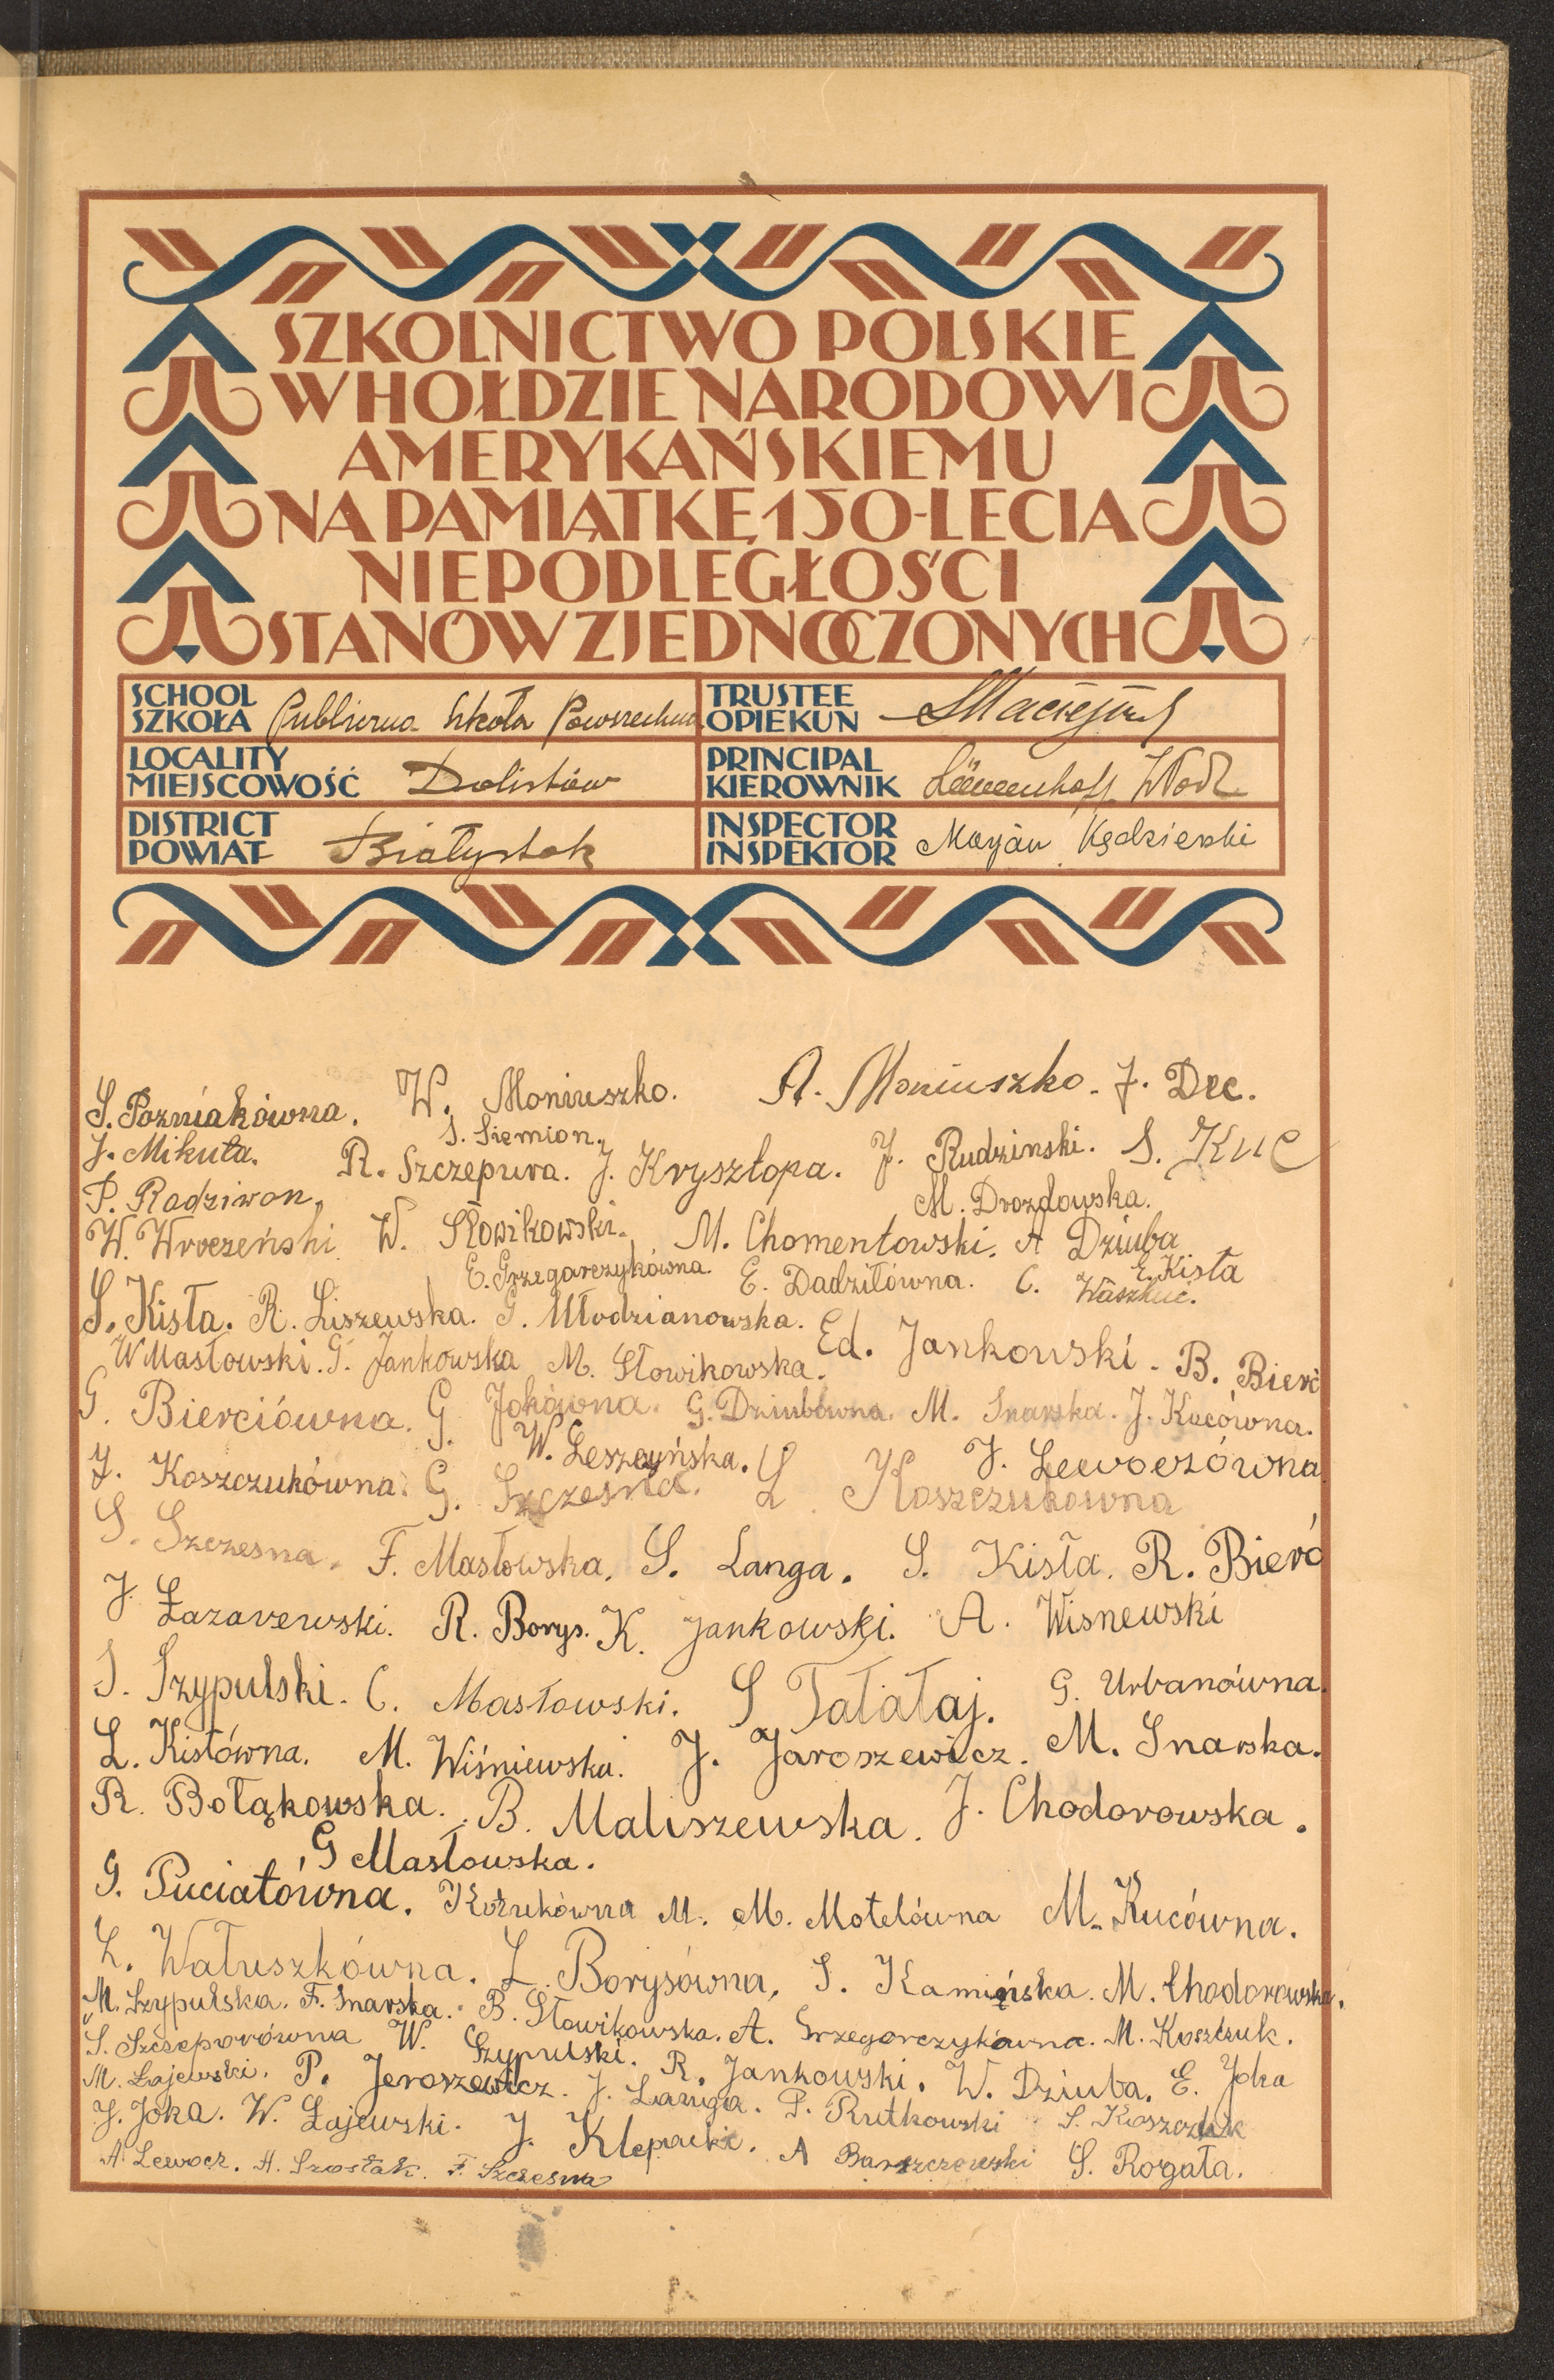 SZKOLNICTWO POLSKIE
W HOŁDZIE NARODOWI
AMERYKAŃSKIEMU
NA PAMIĄTKĘ 150-LECIA
NIEPODLEGŁOŚCI
STANÓW ZJEDNOCZONYCH
SCHOOL
SZKOŁA Publiczna Szkoła Powszechna
TRUSTEE
OPIEKUN
LOCALITY
MIEJSCOWOŚĆ Dolistów
PRINCIPAL
KIEROWNIK
DISTRICT
POWIAT Białystok
INSPECTOR
INSPEKTOR Maryan Kędzierski
S. Pozniakówna. W. Moniuszko. A. Moniuszko. J. Dec.
J. Mikuła. S. Siemion.
R. Szczepura. J. Krysztopa. J. Rudzinski. S. Kuc
P. Radziwon, M. Drozdowska.
W. Wroczeński. W. Słowikowski. M. Chomentowski. A Dziuba
E. Grzegorczykówna. E. Dadziłówna. C. Waszkuc. E. Kisła
S. Kisła. R. Liszewska. G. Młodzianowska.
W Masłowski. G. Jankowska M. Słowikowska. Ed. Jankowski. B. Bierć
G. Bierciówna. G. Jokówna. G. Dziubówna. M. Snarska. J. Kucówna.
Z. Koszczukówna. W. Leszczyńska. J. Lewoczówna.
G. Szczesna. L. Koszczukowna
S. Szczesna. F. Masłowska. S. Langa. S. Kisła. R. Bierć
J. Łazarewski. R. Borys. K. Jankowski. A. Wisnewski
S. Szypulski. C. Masłowski. S Tałałaj. G. Urbanówna.
L. Kisłówna. M. Wiśniewska. J. Jaroszewicz. M. Snarska.
R. Bołąkowska. B. Maliszewska. J. Chodorowska.
G Masłowska.
G. Puciatówna. Kożukówna M. M. Motelówna M. Kucówna.
L. Wałuszkówna. L. Borysówna, S. Kamińska. M. Chodorowska.
M. Szypulska. F. Snarska. B. Słowikowska. A. Grzegorczykówna. M. Koszczuk.
S. Szczeporówna W. Szypulski. R. Jankowski. W. Dziuba. E. Joka
M. Łajewski. P. Jeroszewicz. J. Langa. P. Rutkowski S. Koszczuk
J. Joka. W. Łajewski. J. Klepacki. A Barszczewski S. Rogała.
A. Lewocz. A. Szostak. F. Szczesna